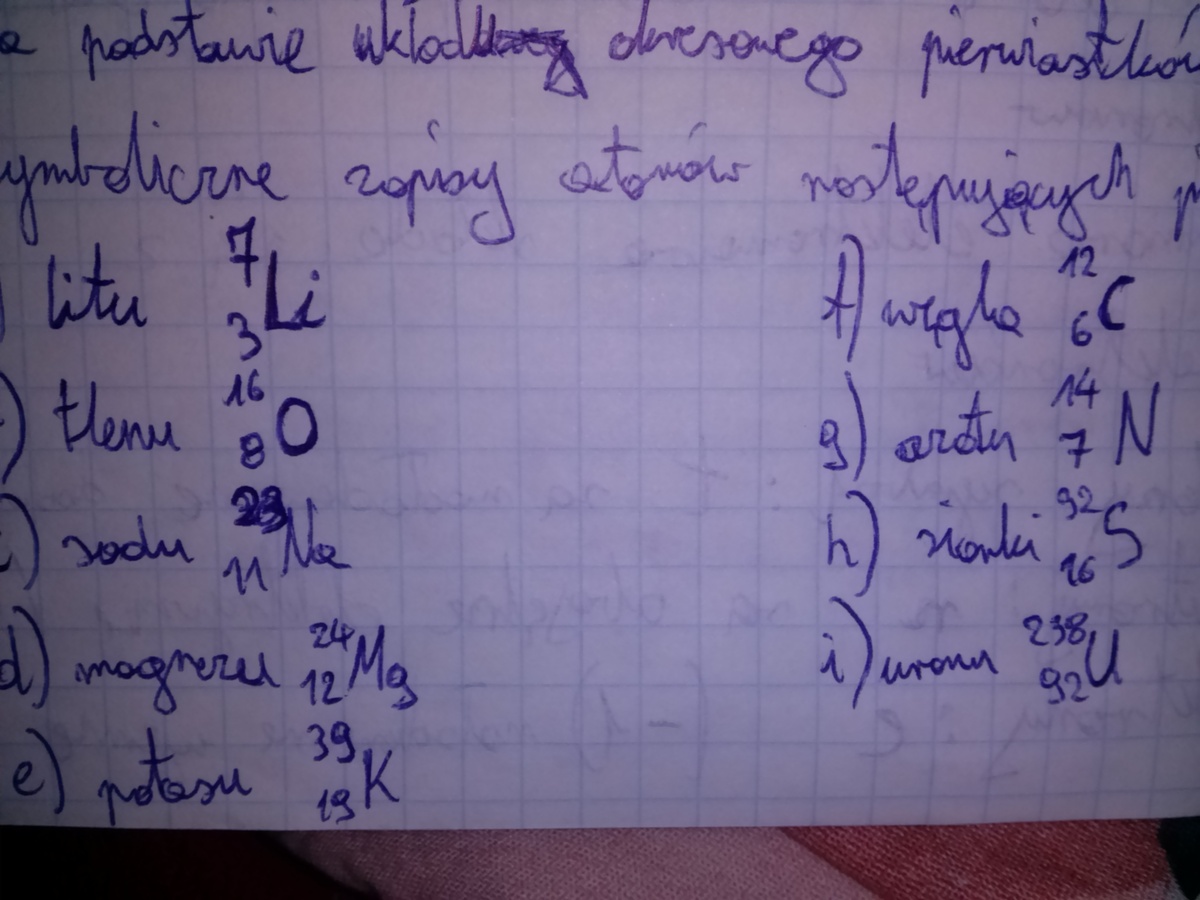 podstawie układu okresowego pierwiastków
symboliczne zapisy atomów następujących
litu ⁷₃Li
tlenu ¹⁶₈O
c) sodu ²³₁₁Na
d) magnezu ²⁴₁₂Mg
e) potasu ³⁹₁₉K
f) węgla ¹²₆C
g) azotu ¹⁴₇N
h) siarki ³²₁₆S
i) uranu ²³⁸₉₂U